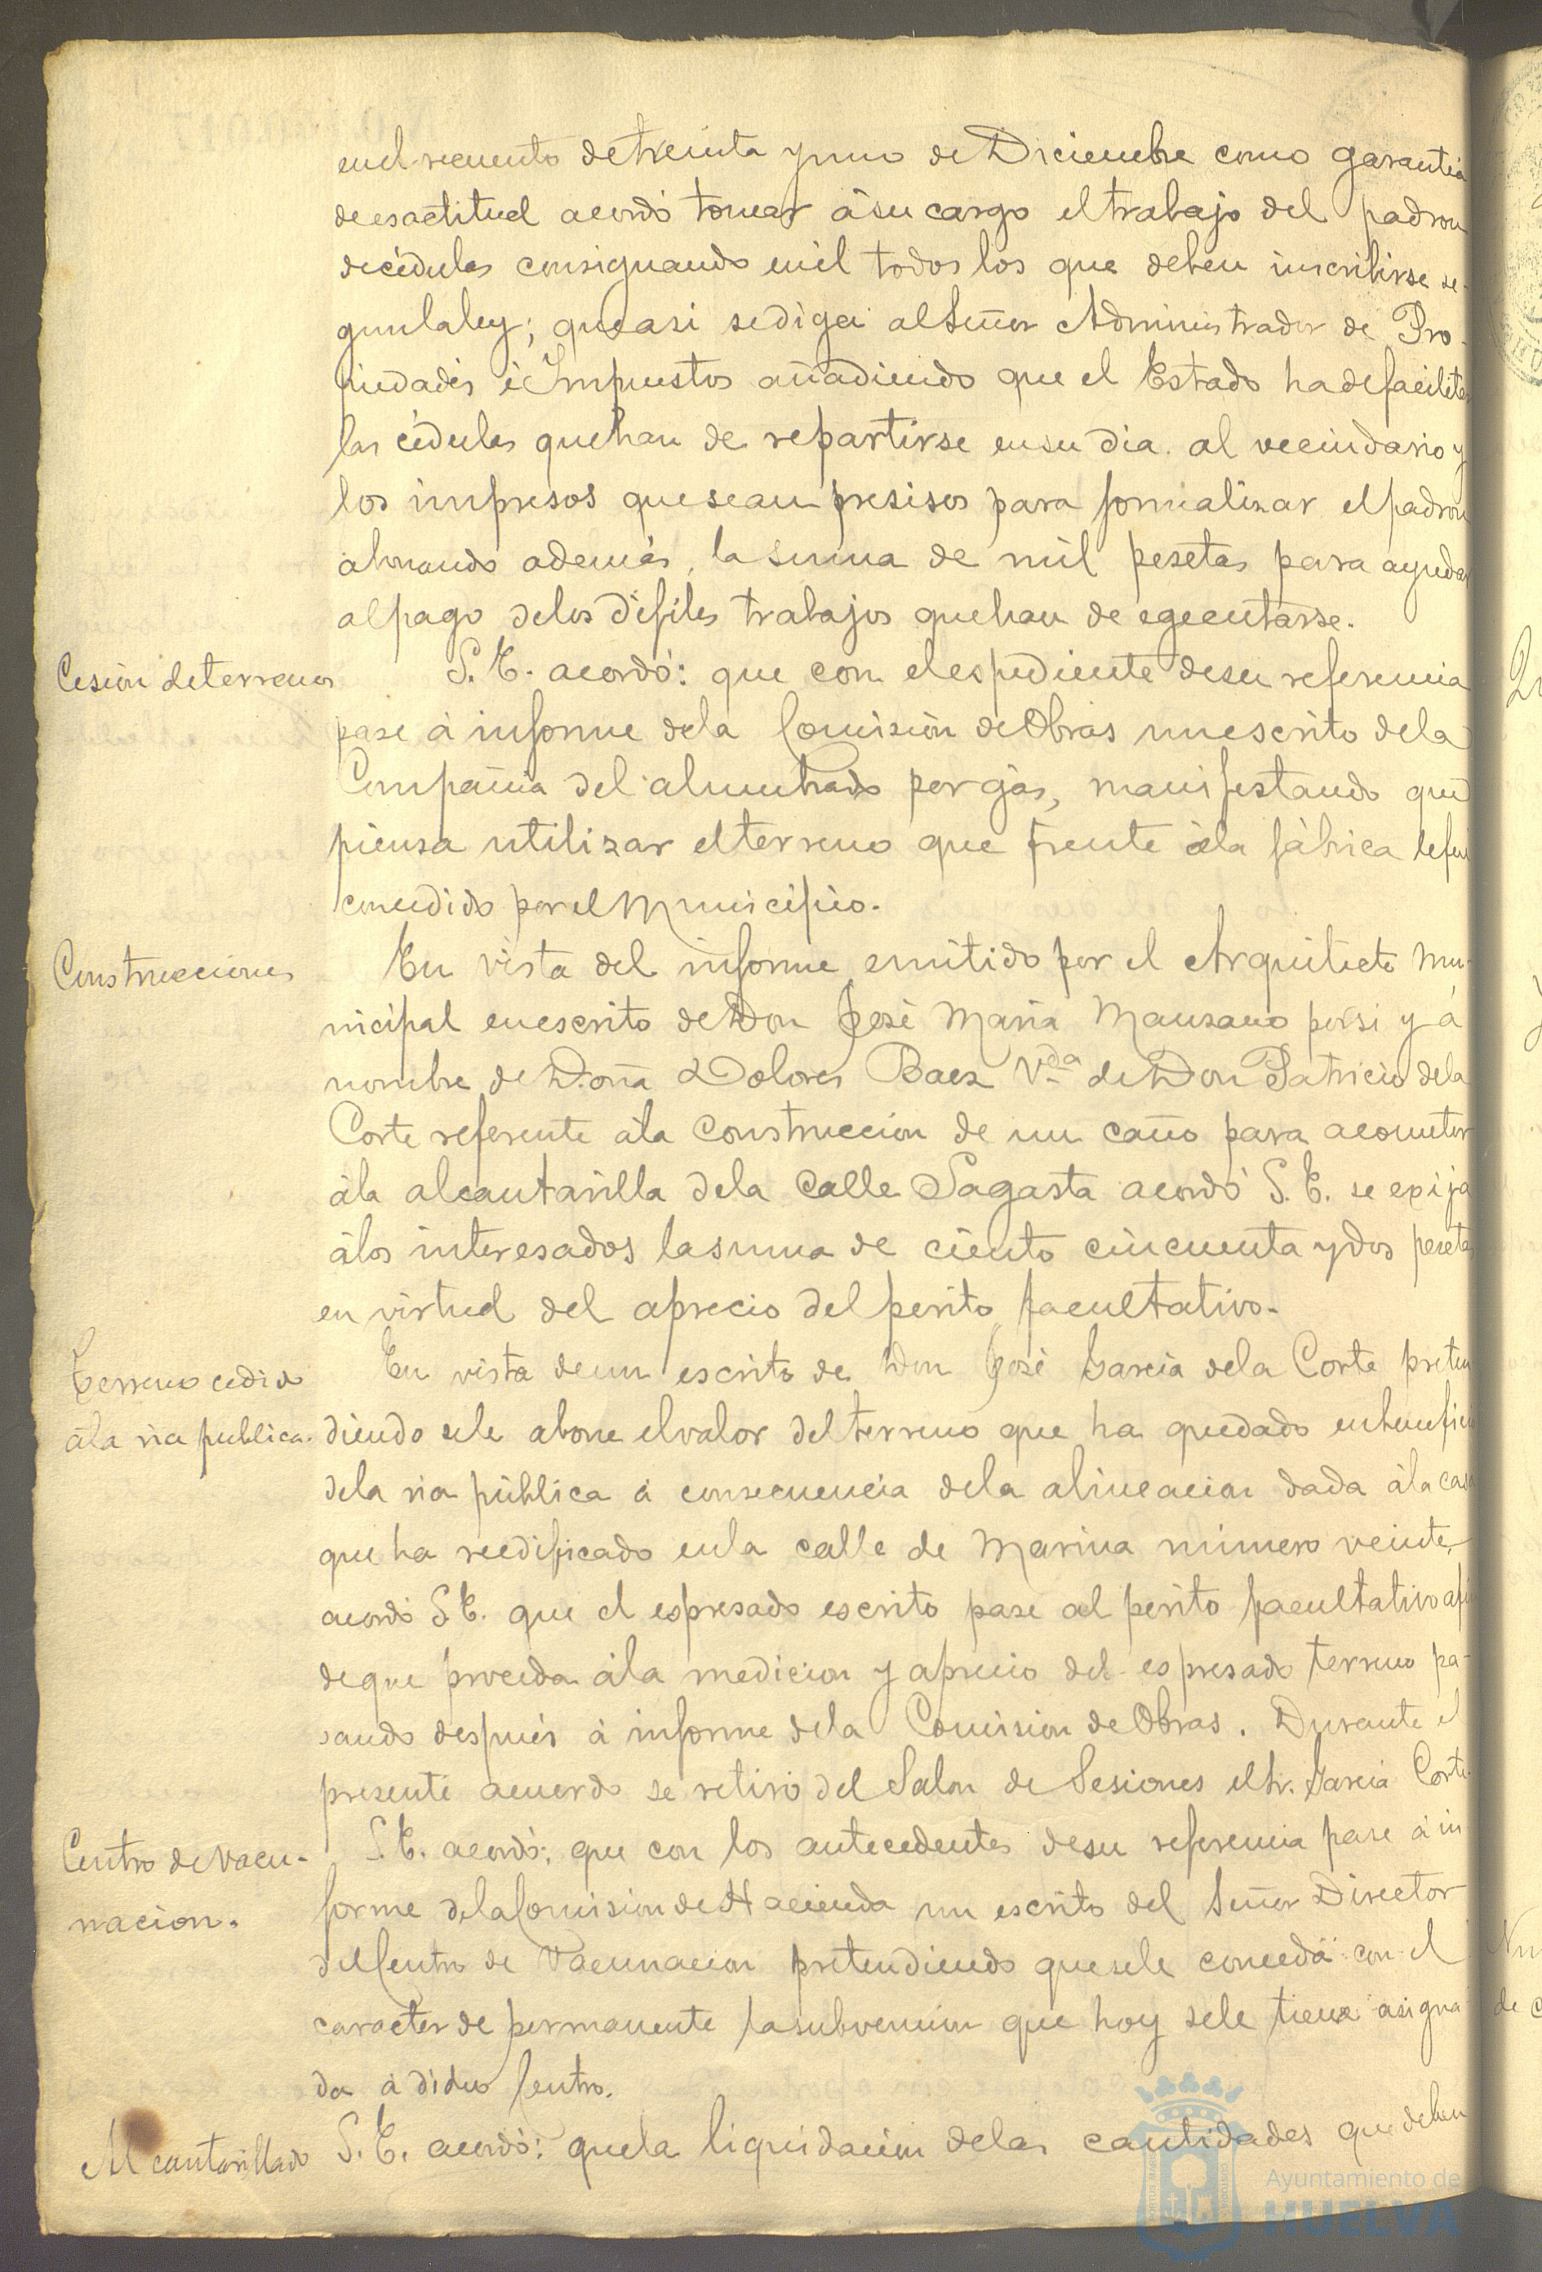 en el recuento de treinta y uno de Diciembre como garantia
de esactitud acordó tomar á su cargo el trabajo del padron
de cédulas consignando en él todos los que deben inscribirse se-
gun la ley; que asi se diga al Señor Administrador de Pro-
piedades é Impuestos añadiendo que el Estado ha de facilitar
las cédulas que han de repartirse en su dia al vecindario y
los impresos que sean presisos para formalizar el padron
abonando además, la suma de mil pesetas para ayudar
al pago de los difiles trabajos que han de egecutarse.
Cesion de terrenos
S. E. acordó: que con el espediente de su referencia
pase á informe de la Comisión de Obras un escrito de la
Compañia del alumbrado por gas, manifestando que
piensa utilizar el terreno que frente á la fábrica le fué
concedido por el Municipio.
Construcciones
En vista del informe emitido por el Arquitecto Mu-
nicipal en escrito de Don José Maria Manzano por si y á
nombre de Doña Dolores Baez V.da de Don Patricio de la
Corte referente á la construccion de un caño para acometer
á la alcantarilla de la calle Sagasta acordó S. E. se exija
á los interesados la suma de ciento cincuenta y dos pesetas
en virtud del aprecio del perito facultativo.
Terreno cedido
á la via publica.
En vista de un escrito de Don José Garcia de la Corte preten
diendo se le abone el valor del terreno que ha quedado en beneficio
de la via pública á consecuencia de la alineacion dada á la casa
que ha reedificado en la calle de Marina número veinte,
acordó S. E. que el espresado escrito pase al perito facultativo á fin
de que proceda á la medicion y aprecio del espresado terreno pa-
sando después á informe de la Comision de Obras. Durante el
presente acuerdo se retiró del Salon de Sesiones el Sr. Garcia Corte.
Centro de Vacu-
nacion.
S. E. acordó: que con los antecedentes de su referencia pase á in
forme de la Comision de Hacienda un escrito del Señor Director
del Centro de Vacunacion pretendiendo que se le conceda con el
caracter de permanente la subvencion que hoy se le tiene asigna
da á dicho Centro.
Alcantarillado
S. E. acordó: que la liquidacion de las cantidades que deben
Ayuntamiento de
HUELVA